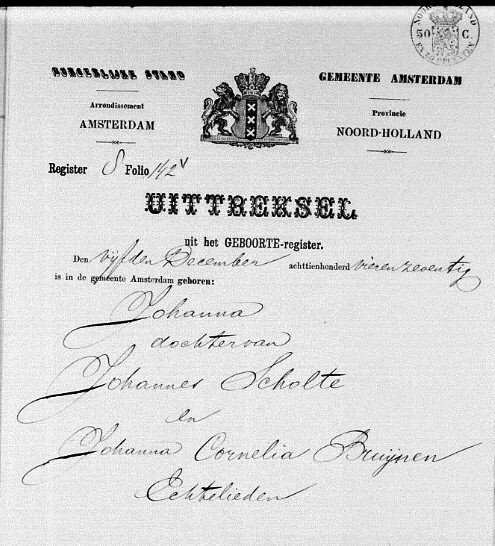 NOORD HOLLAND
50 C.
BURGERLIJKE STAND
GEMEENTE AMSTERDAM
Arrondissement
Provincie
AMSTERDAM
NOORD-HOLLAND
Register 8 Folio 142v
UITTREKSEL
uit het GEBOORTE-register.
Den vijfden December achttienhonderd vierenzeventig
is in de gemeente Amsterdam geboren:
Johanna
dochter van
Johannes Scholte
en
Johanna Cornelia Bruijnen
Echtelieden